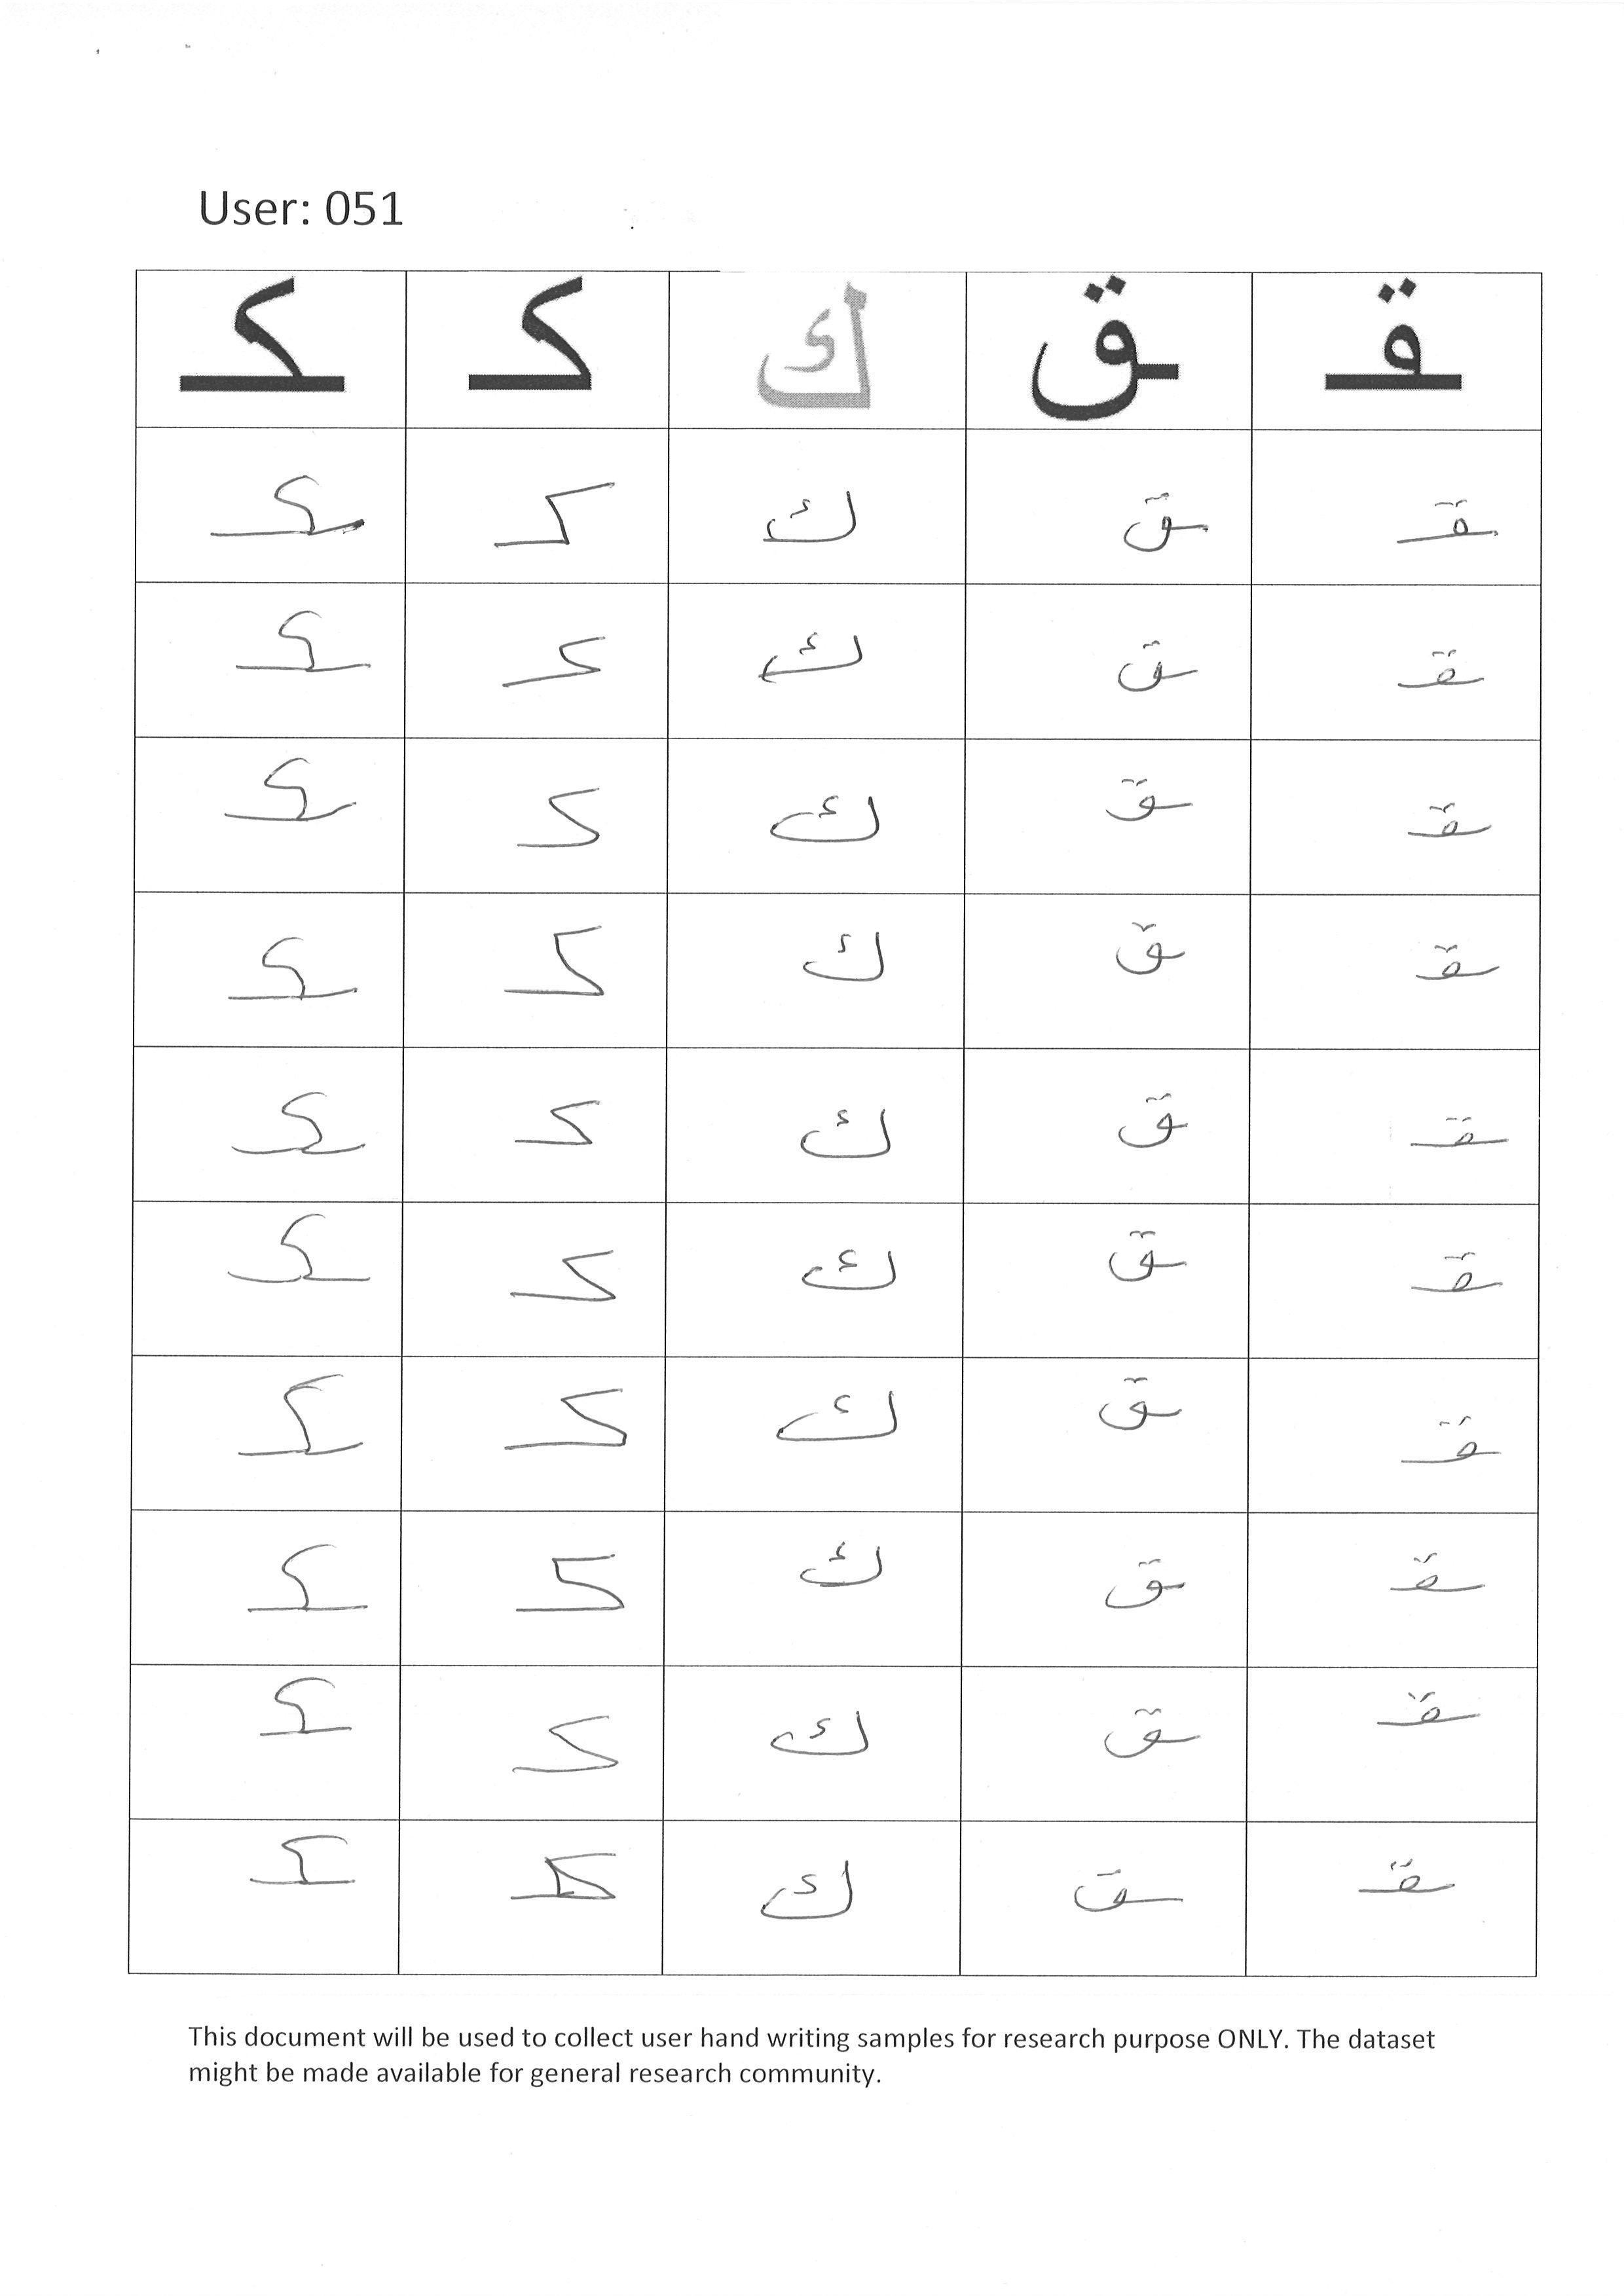 User: 051
ـقـ ـق ك كـ ـكـ
ـقـ ـق ك كـ ـكـ
ـقـ ـق ك كـ ـكـ
ـقـ ـق ك كـ ـكـ
ـقـ ـق ك كـ ـكـ
ـقـ ـق ك كـ ـكـ
ـقـ ـق ك كـ ـكـ
ـقـ ـق ك كـ ـكـ
ـقـ ـق ك كـ ـكـ
ـقـ ـق ك كـ ـكـ
ـقـ ـق ك كـ ـكـ
This document will be used to collect user hand writing samples for research purpose ONLY. The dataset
might be made available for general research community.